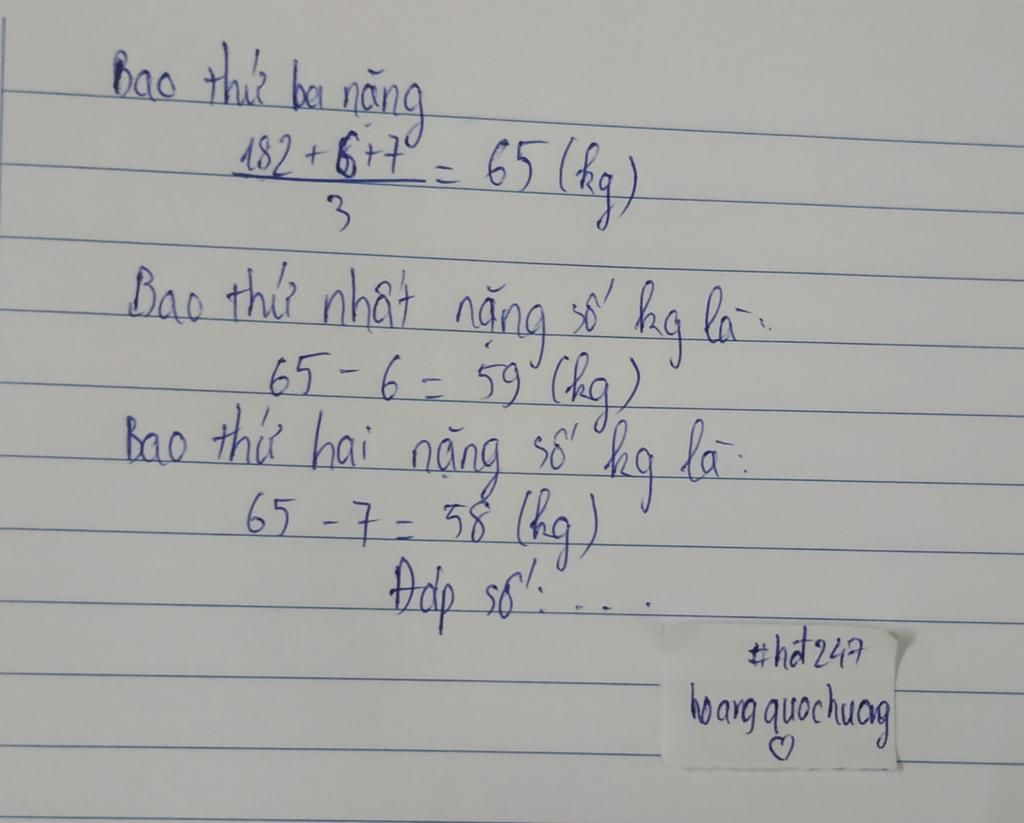 Bao thứ ba nặng
182 + 6 + 7 / 3 = 65 (kg)
Bao thứ nhất nặng số kg là:
65 - 6 = 59 (kg)
Bao thứ hai nặng số kg là:
65 - 7 = 58 (kg)
Đáp số: ....
#hđ247
hoangquochuong
♡